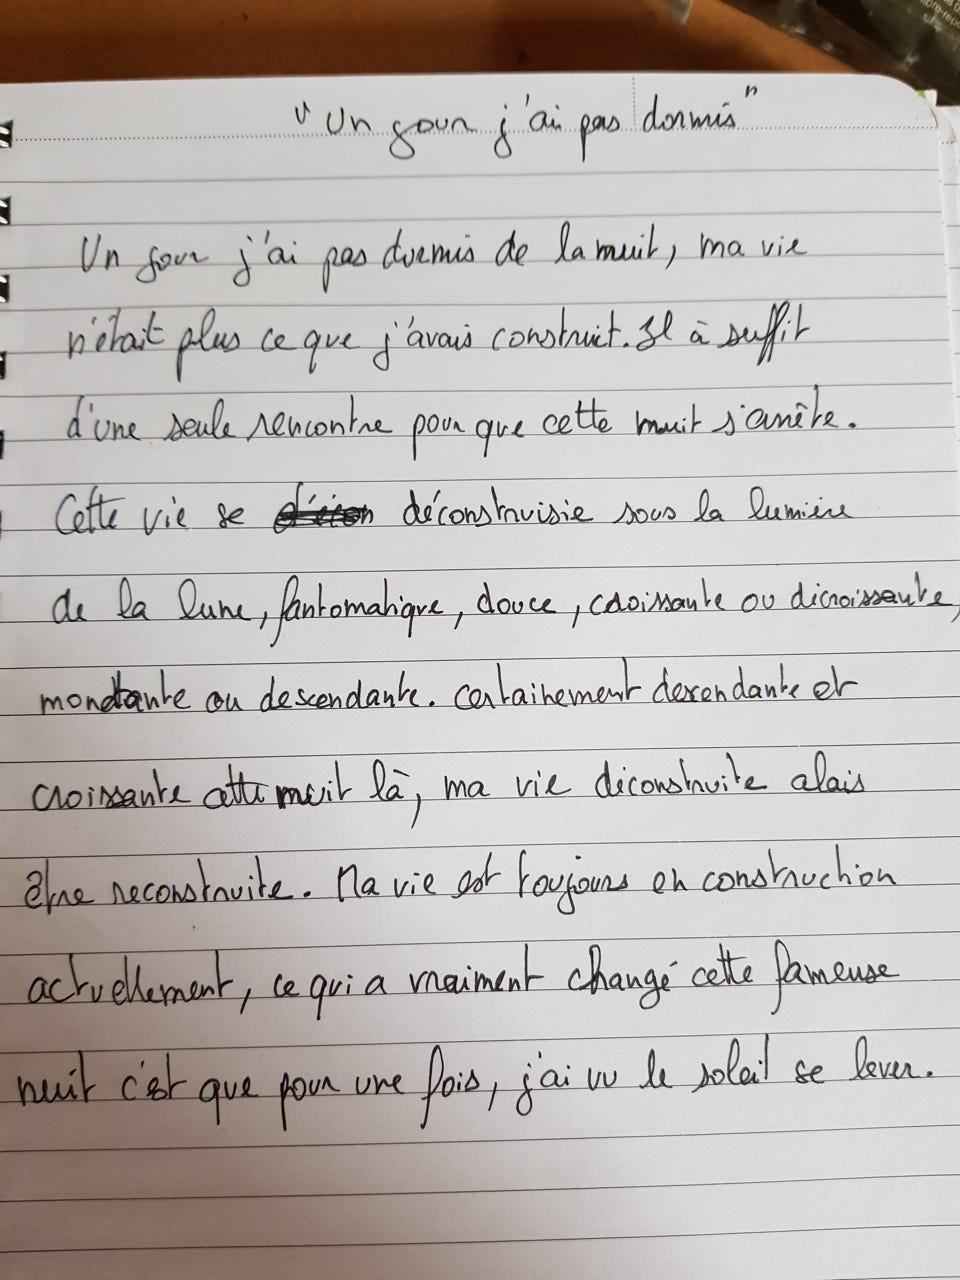 "Un jour j'ai pas dormis"
Un jour j'ai pas dormis de la nuit, ma vie
n'était plus ce que j'avais construit. Il à suffit
d'une seule rencontre pour que cette nuit s'arrête.
Cette vie se déconstruisie sous la lumière
de la lune, fantomatique, douce, croissante ou dicroissante,
montante ou descendante. Certainement descendante et
croissante cette nuit là, ma vie déconstruite alais
être reconstruite. Ma vie est toujours en construction
actuellement, ce qui a vraiment changé cette fameuse
nuit c'est que pour une fois, j'ai vu le soleil se lever.